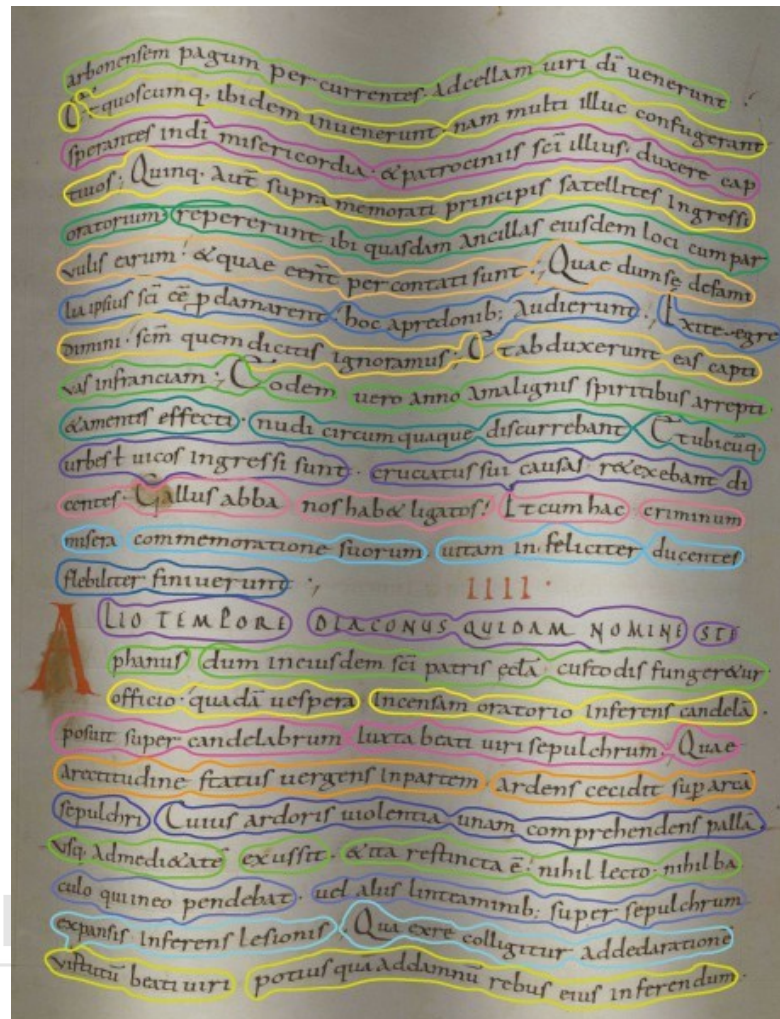 arbonensem pagum percurrentes. Adcellam uiri dī uenerunt
Et quoscumq. ibidem inuenerunt. nam multi illuc confugerant
sperantes indī misericordia. & patrociniis scī illius. duxere cap
tiuos; Quinq. Aut supra memorati principis satellites Ingressi
oratorium. repererunt ibi quasdam Ancillas eiusdem loci cum par
uulis earum. & quae percontati sunt; Quae dum se defami
lia ipsius scī eē damarent hoc apredonib; Audierunt. Exite egre
dimini. scm quem dicitis ignoramus; Et abduxerunt eas capti
uas infranciam; Eodem uero anno Amalignis spiritibus arrepti
& amentis effecti. nudi circumquaque discurrebant Et ubicūq.
urbes ł uicos Ingressi sunt. cruciatus sui causas. r&exebant di
centes. Gallus abba nos hab& ligatos! Et cum hac criminum
misera commemoratione suorum uitam infeliciter ducentes
flebiliter finiuerunt.,
IIII.
ALIO TEMPORE DIACONUS QUIDAM NOMINE STE
phanus dum ineiusdem scī patris custodis funger&ur
officio. quadā uespera Incensam oratorio Inferens candelā
posuit super candelabrum Iuxta beati uiri sepulchrum. Quae
arectitudine status uergens Inpartem ardens cecidit
sepulchri Cuius ardoris uiolentia unam comprehendens pallā.
usq. Admedi&atē exussit. & ita restincta ē. nihil lecto. nihil ba
culo qui ineo pendebat. uel aliis linteaminib; super sepulchrum
expansis Inferens lesionis. Qua exre colligitur addedarationē
uirtutū beati uiri potius quā Addamnū rebus eius Inferendum.